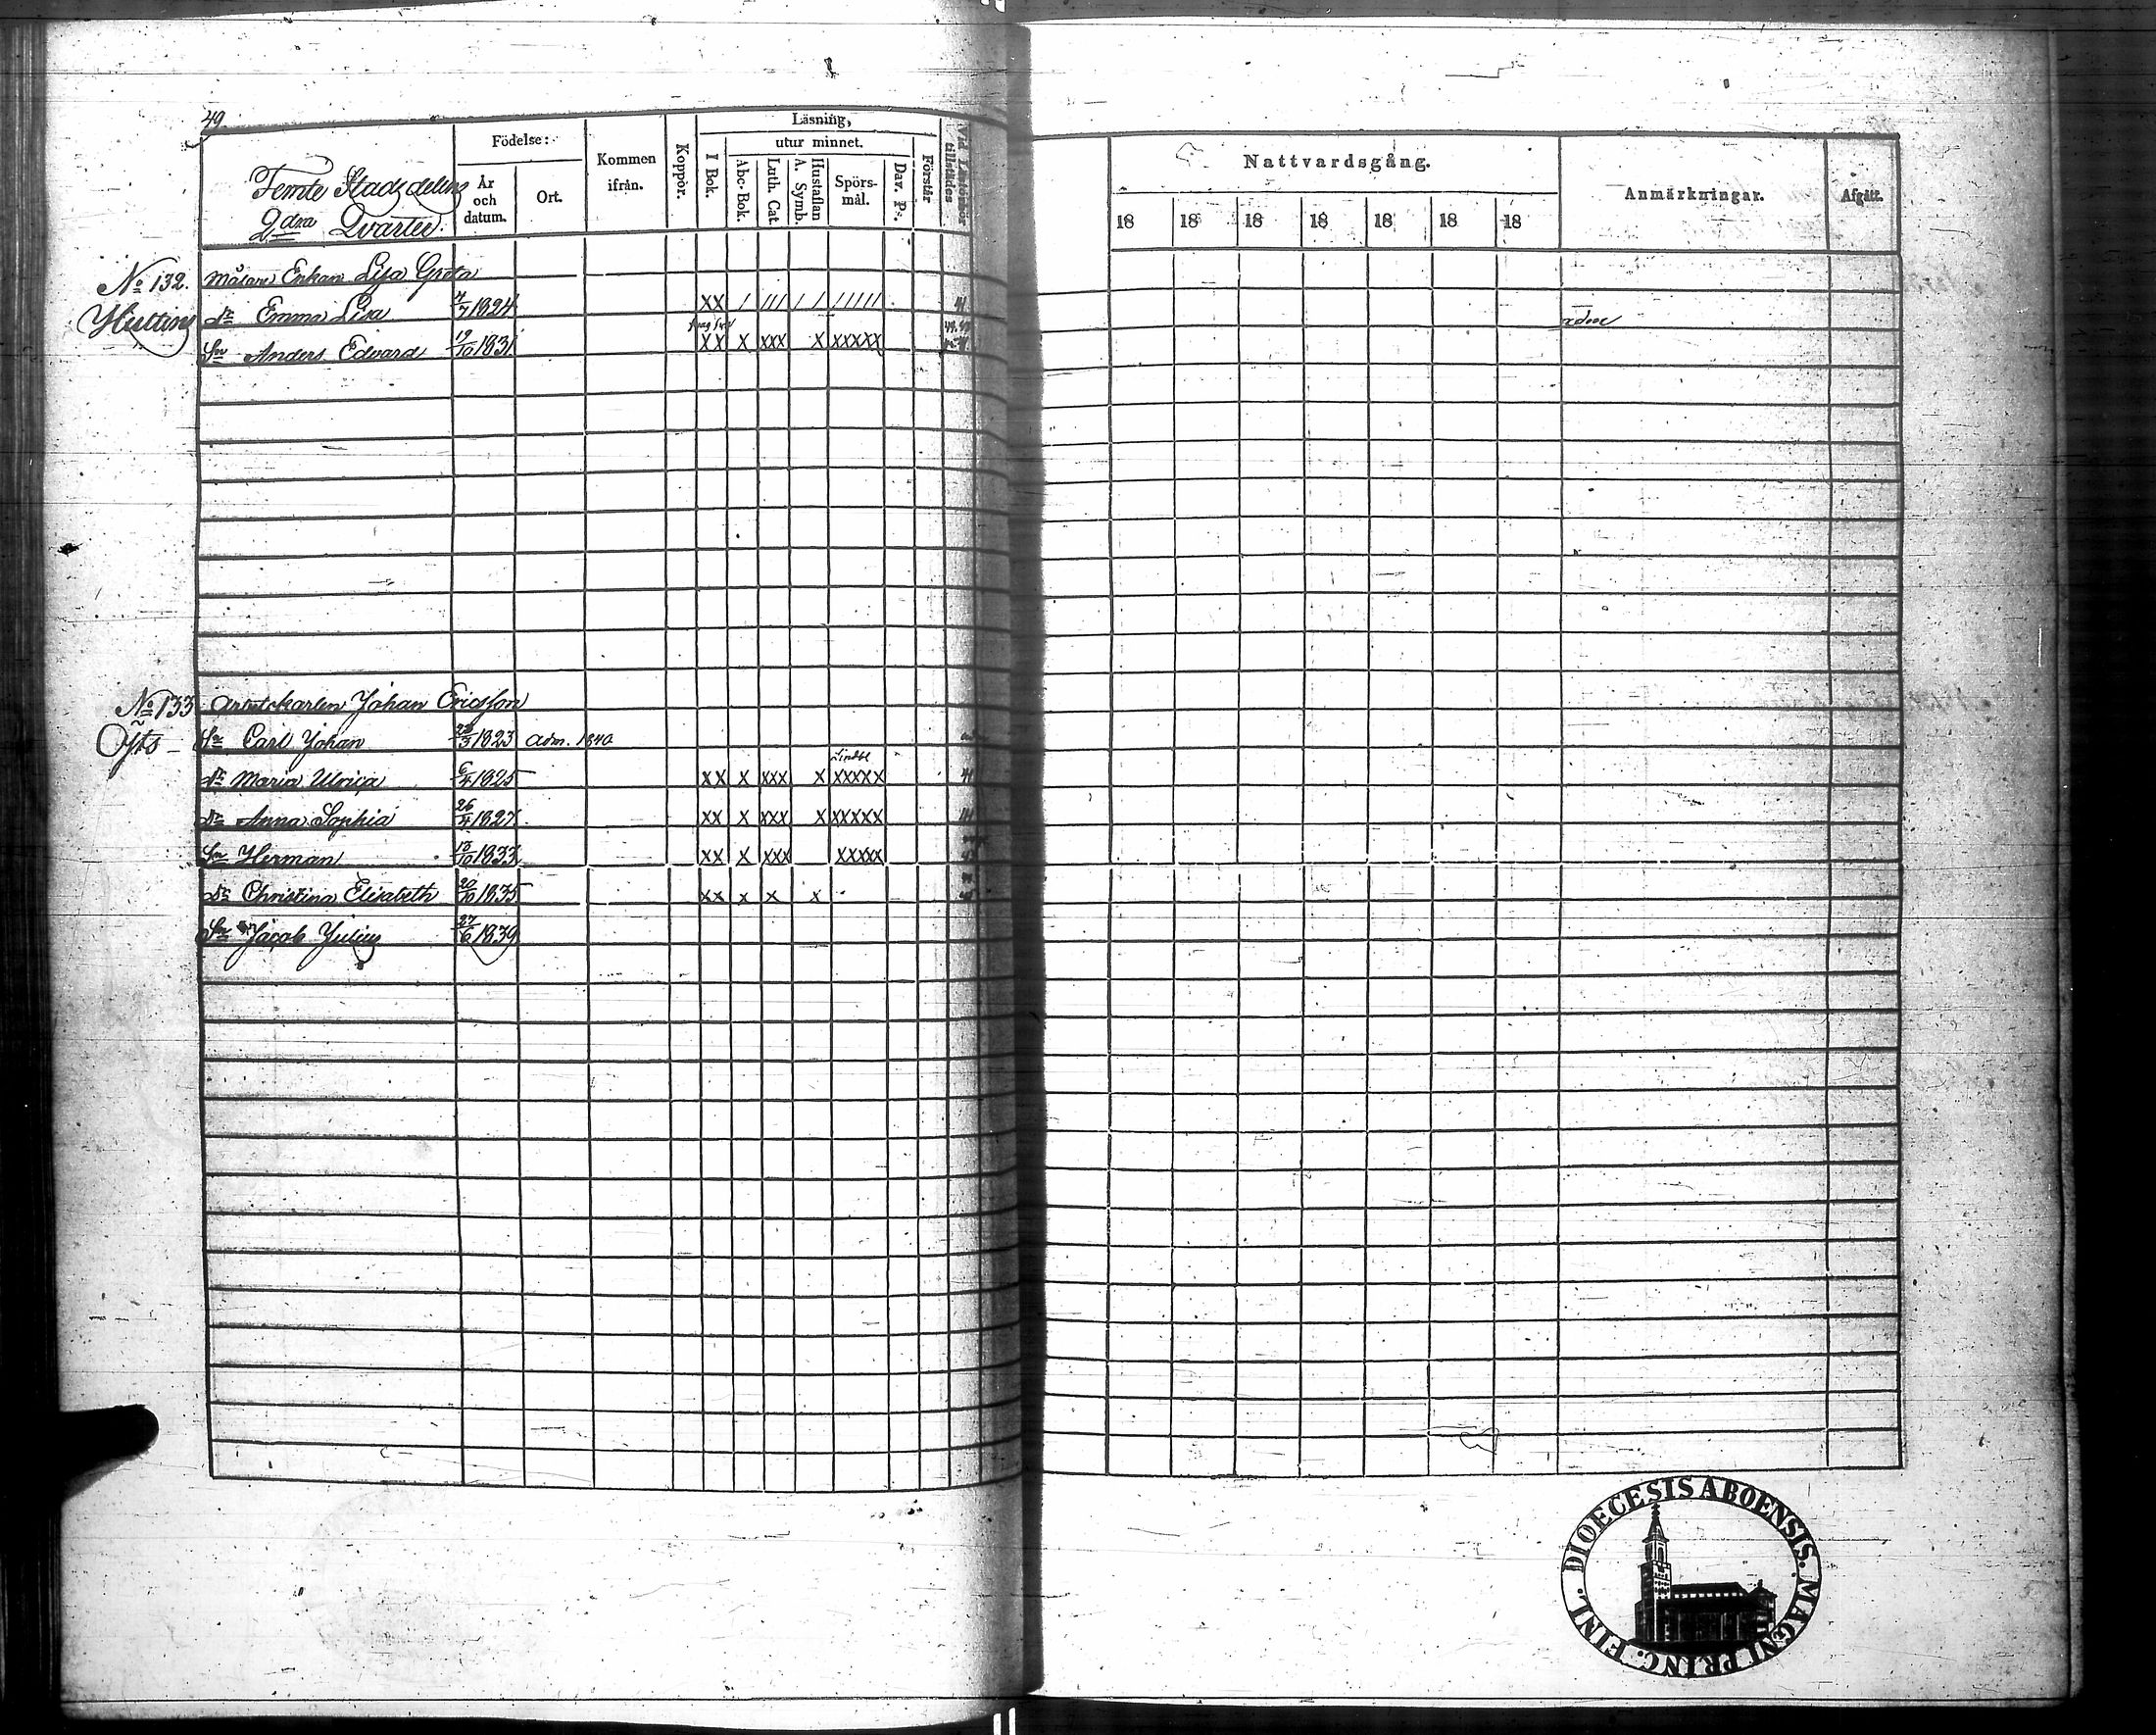 49.
Femte Stadsdelen
2dra Qvarter.
Födelse:
År och datum.
Ort.
Kommen ifrån.
Koppor.
Läsning,
I Bok.
utur minnet.
Abc-Bok.
Luth. Cat.
A. Symb.
Hustaflan
Spörs-mål.
Dav. Ps.
Förstår
Vid Läseförhör tillstädes
Nattvardsgång.
18 18 18 18 18 18 18
Anmärkningar.
Afgått.
No 132. Enkan Lisa Greta
dr Emma Lisa 4/7 1824 XX / /// / / ///// 41
Sn Anders Edvard 19/10 1831 XX X XXX X XXXXX
No 133 Arbetskarlen Johan Ericsson
Sn Carl Johan 1823 adm. 1840
dr Maria Ulrica 6/4 1825 XX X XXX X XXXXX 41
dr Anna Sophia 26/4 1827 XX X XXX X XXXXX
Sn Herman 1833 XX X XXX XXXXX
dr Christina Elisabeth 20/10 1835 XX X X X
Sn Jacob Julius 27/6 1839
DIOECESIS ABOENSIS. MAGNI PRINC. FINL.